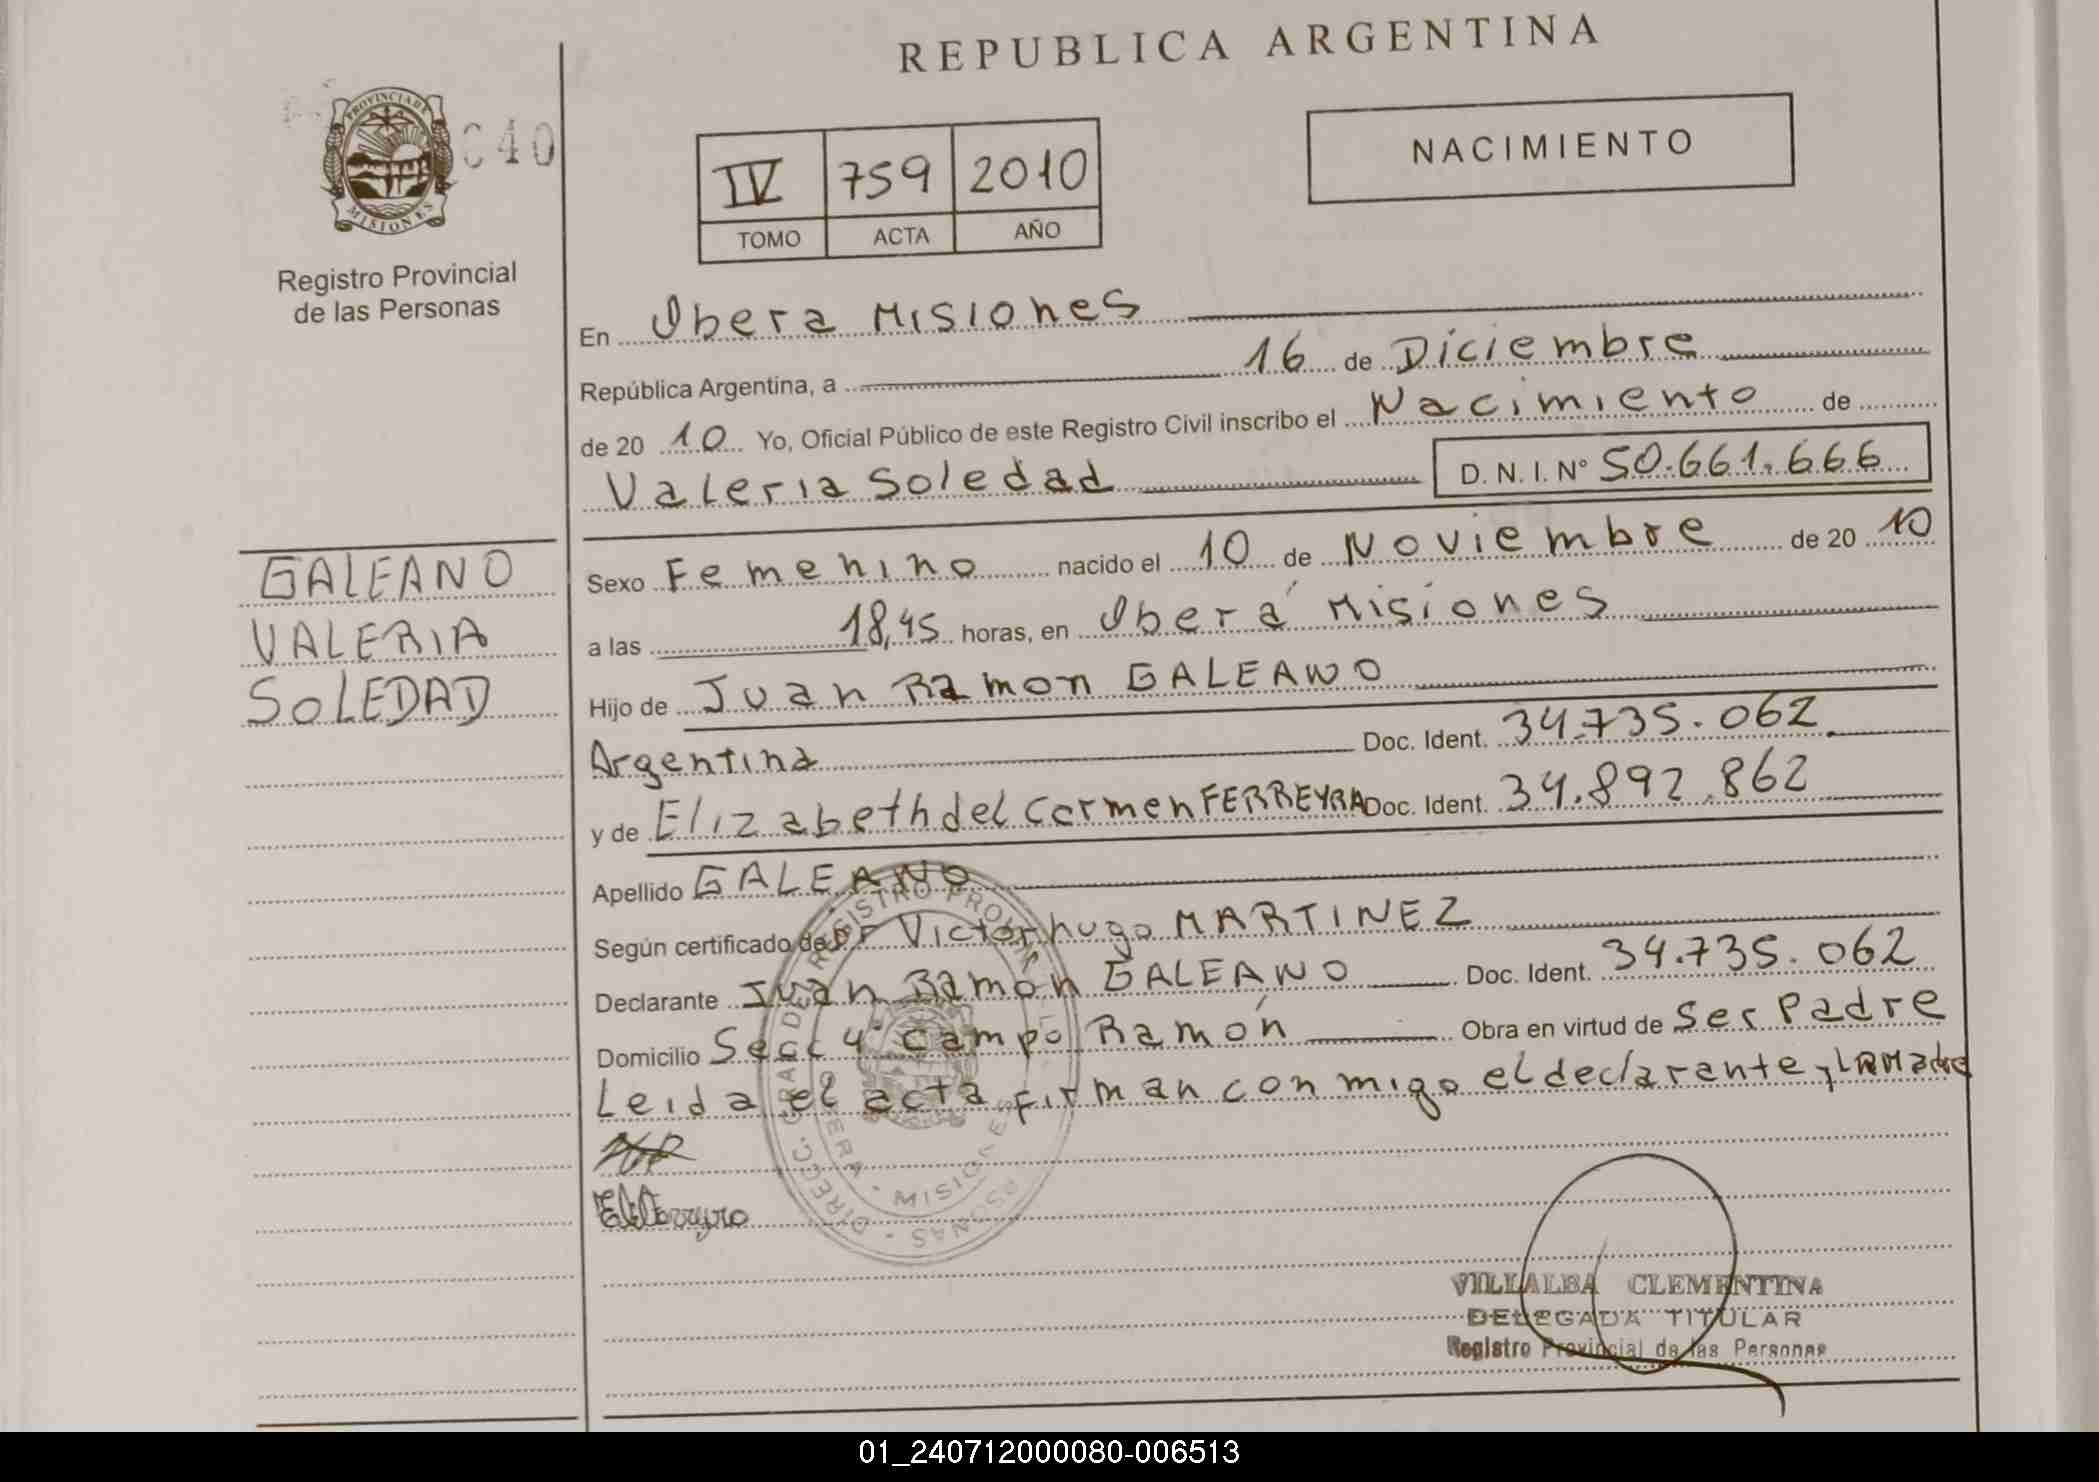 REPUBLICA ARGENTINA
PROVINCIA DE
MISIONES
C40
Registro Provincial
de las Personas
IV 759 2010
TOMO ACTA AÑO
NACIMIENTO
GALEANO
VALERIA
SOLEDAD
En Ibera Misiones
República Argentina, a 16 de Diciembre
de 20 10 Yo, Oficial Público de este Registro Civil inscribo el Nacimiento de
Valeria Soledad D. N. I. N° 50.661.666
Sexo Femenino nacido el 10 de Noviembre de 20 10
a las 18,45 horas, en Iberá Misiones
Hijo de Juan Ramon GALEANO
Argentina Doc. Ident. 34.735.062
y de Elizabeth del Carmen FERREYRA Doc. Ident. 34.892.862
Apellido GALEANO
Según certificado de Dr Victor hugo MARTINEZ
Declarante Juan Ramon GALEANO Doc. Ident. 34.735.062
Domicilio Secc 4ª Campo Ramón Obra en virtud de Ser Padre
Leida el acta firman conmigo el declarante y LA Madre
VILLALBA CLEMENTINA
DELEGADA TITULAR
Registro Provincial de las Personas
01_240712000080-006513